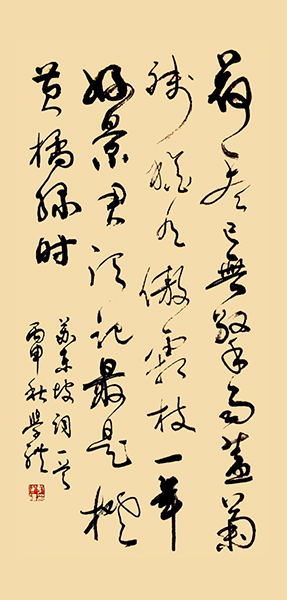 荷尽已無擎雨盖菊
残猶有傲霜枝一年
好景君须记最是橙
黄橘绿时
苏东坡词一首
丙申秋學